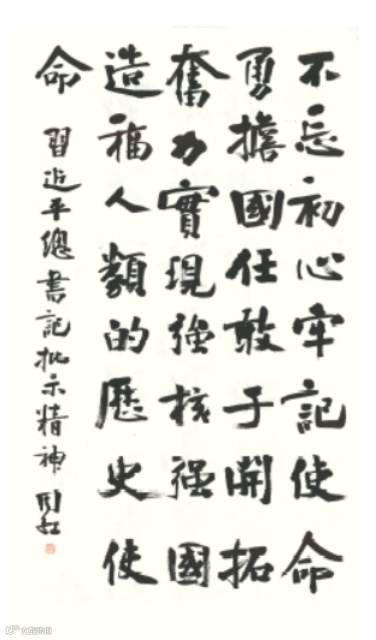 不忘初心牢記使命
勇擔國任敢于開拓
奮力實現強核强國
造福人類的歷史使
命
習近平總書記批示精神